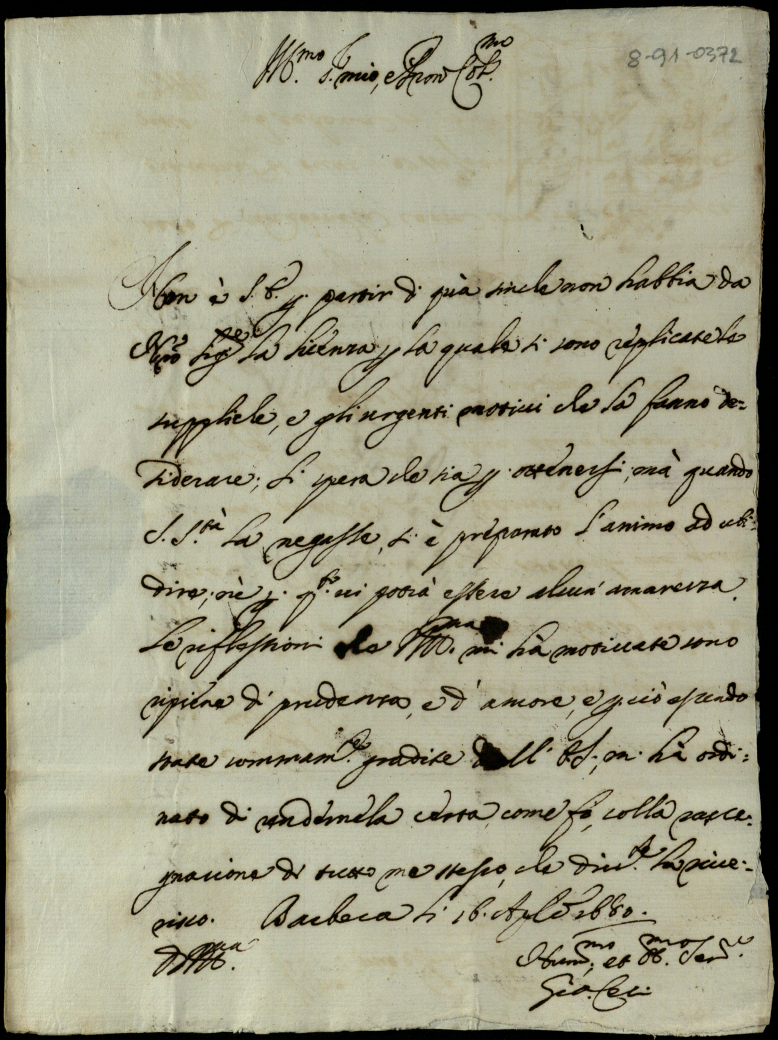 8-91-0372
Ill.mo S. mio, e Pron Col.mo
Non è S. E. p. partir di quà sinche non habbia da
N.ro Sig.re la licenza, p la quale si sono replicate le
suppliche, e gli urgenti motivi che la fanno de=
siderare; si spera che sia p. ottenersi; mà quando
S. S.tà la negasse, si è preparato l'animo ad ubi=
dire; nè p. q.to vi potrà essere alcun' amarezza.
Le riflessioni che V.S. Ill.ma mi hà motivate sono
ripiene di prudenza, e d' amore, e p ciò essendo
state sommam.te gradite dall' E.S., m' hà ordi=
nato di rendernela certa, come fo, colla rasse=
gnazione di tutto me stesso, che div.te la rive=
risco. Barbera li 16. Aplē 1680.
D V.S. Ill.ma
Hum.mo, et Obl.mo Ser.re
Gio. Ceci